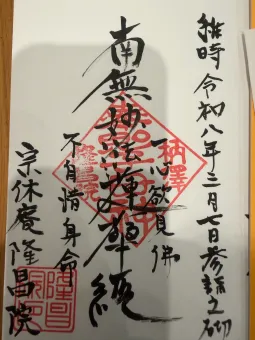 於時 令和八年三月七日参詣之砌
一心欲見佛
南無妙法蓮華経
不自惜身命
宗休慶 隆昌院
柄澤
隆昌院